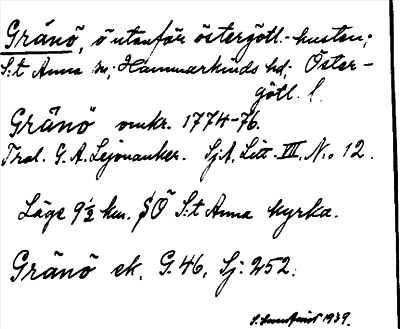 Gränö, ö utanför östergötl.-kusten;
S:t Anna sn; Hammarkinds hd; Öster-
götl. l.
Gränö omkr. 1774-76.
Trol. G. A. Lejonanker. SjA, Litt. VII, N:o 12.
Läge 9½ km. SÖ S:t Anna kyrka.
Gränö ek. G. 46, Sj: 252.
1939.